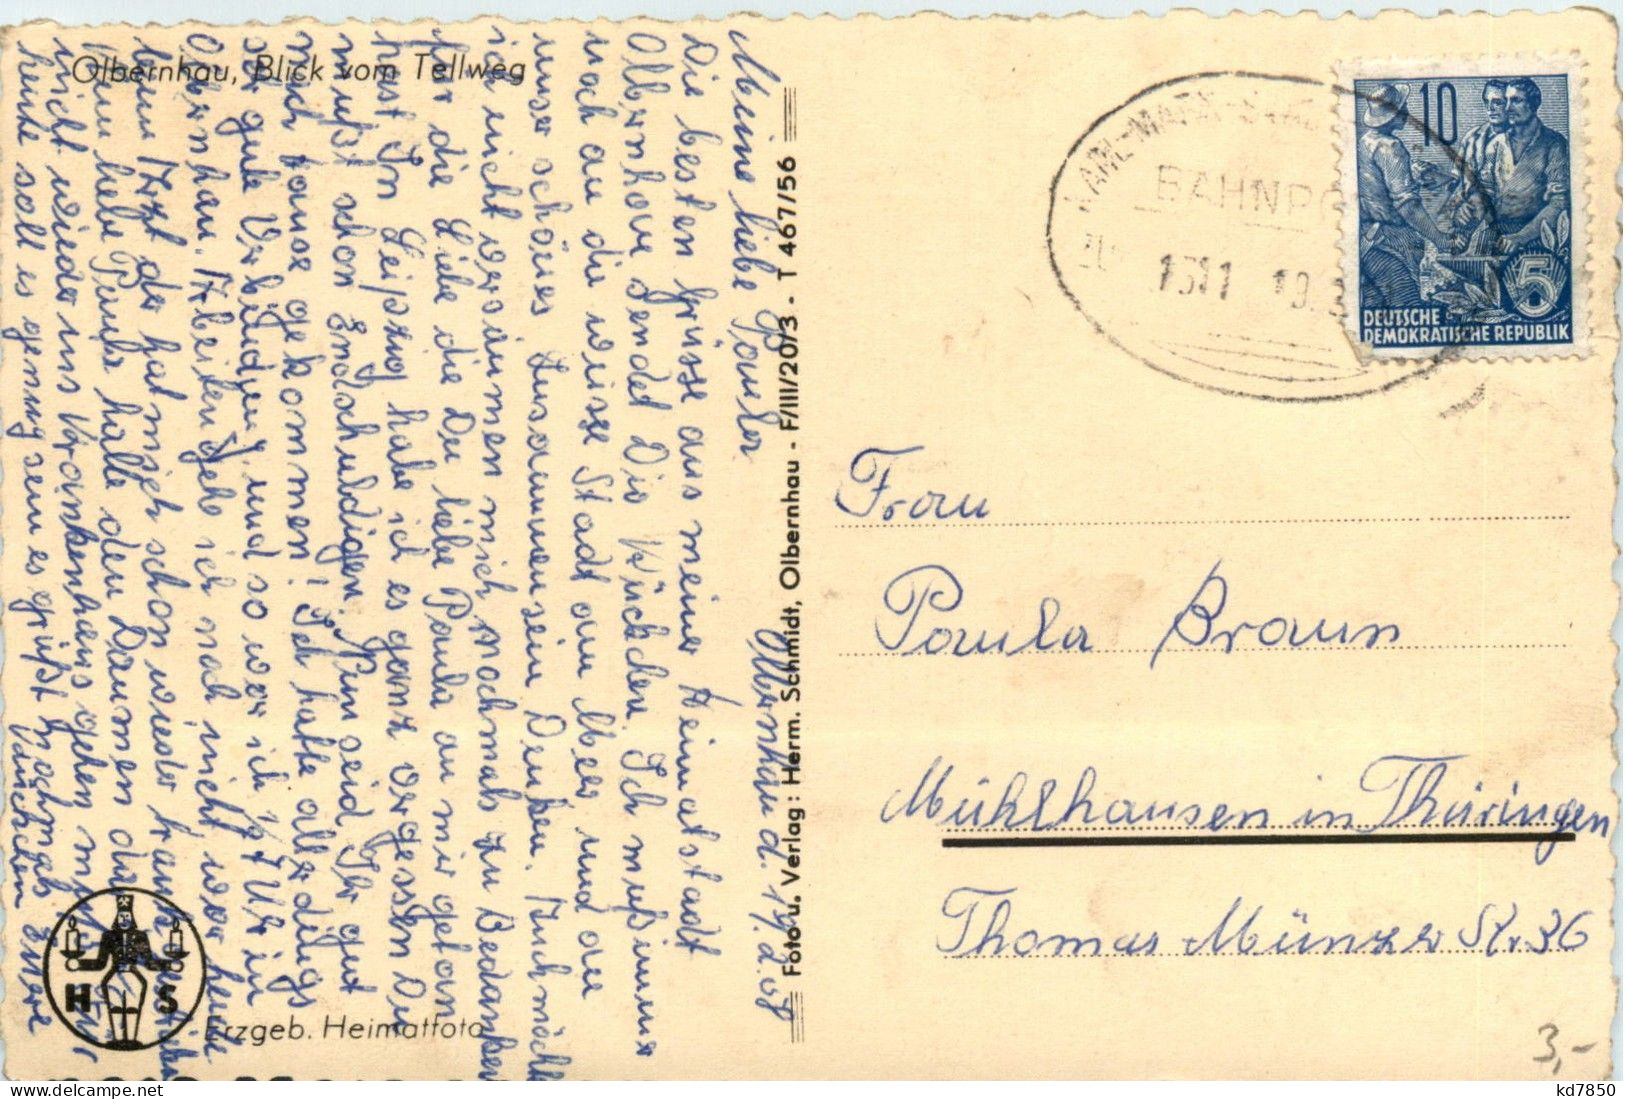 Olbernhau, Blick vom Tellweg
Olbernhau d. 19.2.
Meine liebe Paula
Die besten Grüsse aus meiner Heimatstadt
Olbernhau sendet Dir Kückchen. Ich muß immer
noch an die weisse Stadt am Meer und an
unser schönes Zusammensein Denken. Auch möcht
ich nicht versäumen mich nochmals zu Bedanken
für die Liebe die Du liebe Paula an mir getan
hast. In Leipzig habe ich es ganz vergessen Du
mußt schon Endschuldigen. Nun seid Ihr gut
nach hause gekommen! Ich hatte allerdings
sehr gute Verbindung und so war ich 1/2 7 Uhr in
Olbernhau. Arbeiten gehe ich noch nicht, war heute
beim Arzt der hat mich schon wieder krank
liebe Paula halte den Daumen
nicht wieder ins Krankenhaus gehen muß
heute soll es genug sein es grüßt nochmals Eure
Kückchen
H S
Erzgeb. Heimatfoto
Foto u. Verlag: Herm. Schmidt, Olbernhau - F/III/20/3 - T 467/56
KARL-MARX-
BAHNPO
10
5
DEUTSCHE
DEMOKRATISCHE REPUBLIK
Frau
Paula Braun
Mühlhausen in Thüringen
Thomas Münzer Str. 36
3,-
kd7850